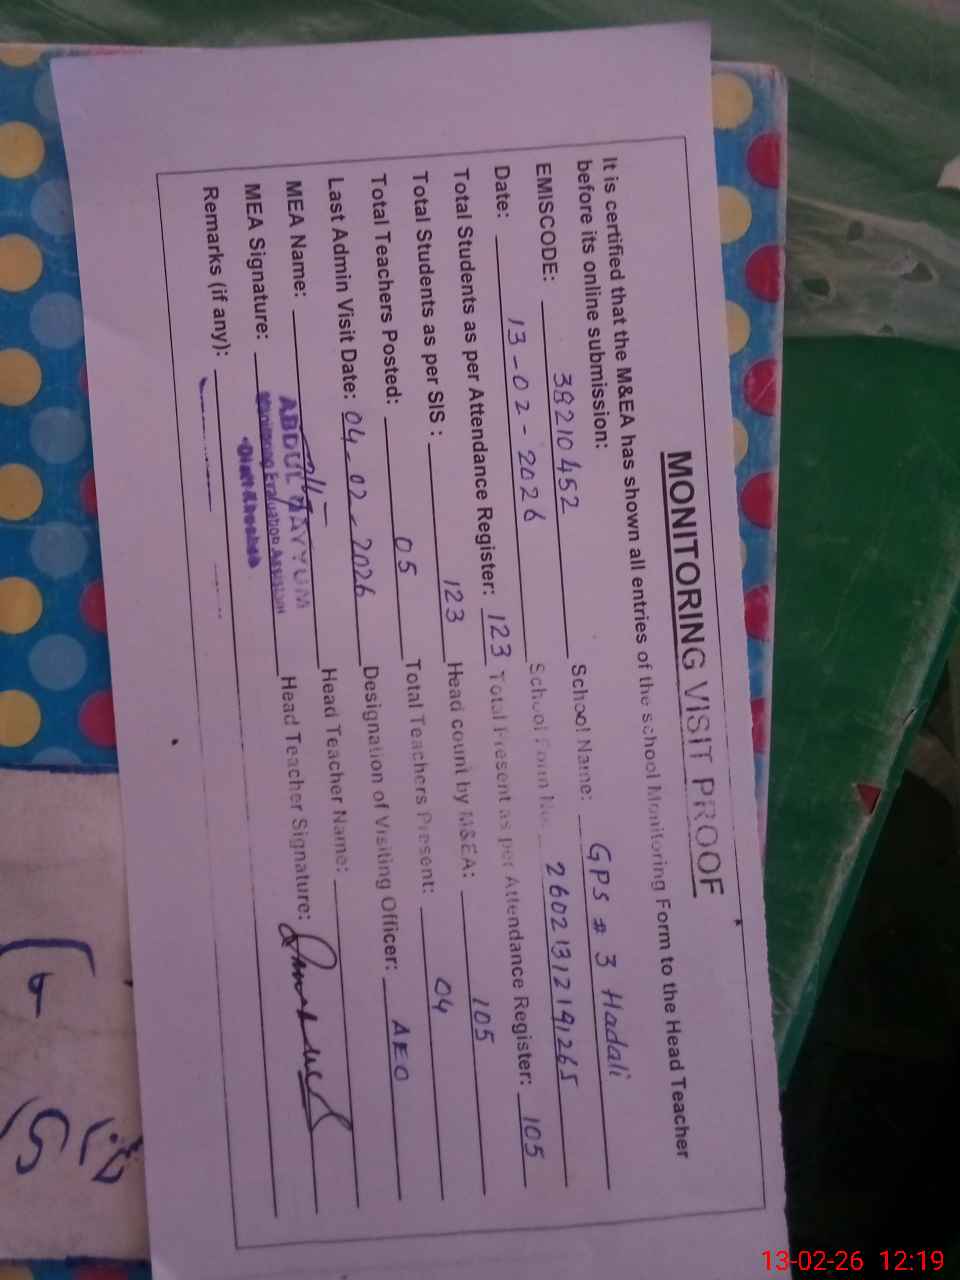 MONITORING VISIT PROOF
It is certified that the M&EA has shown all entries of the school Monitoring Form to the Head Teacher
before its online submission:
EMISCODE: 38210452 School Name: GPS # 3 Hadali
Date: 13-02-2026 School Form No. 26021312191265
Total Students as per Attendance Register: 123 Total Present as per Attendance Register: 105
Total Students as per SIS : 123 Head count by M&EA: 105
Total Teachers Posted: 05 Total Teachers Present: 04
Last Admin Visit Date: 04-02-2026 Designation of Visiting Officer: AEO
MEA Name: ABDUL QAYYUM Head Teacher Name:
MEA Signature: Monitoring Evaluation Assistant Head Teacher Signature:
Distt Khushab
Remarks (if any):
13-02-26 12:19